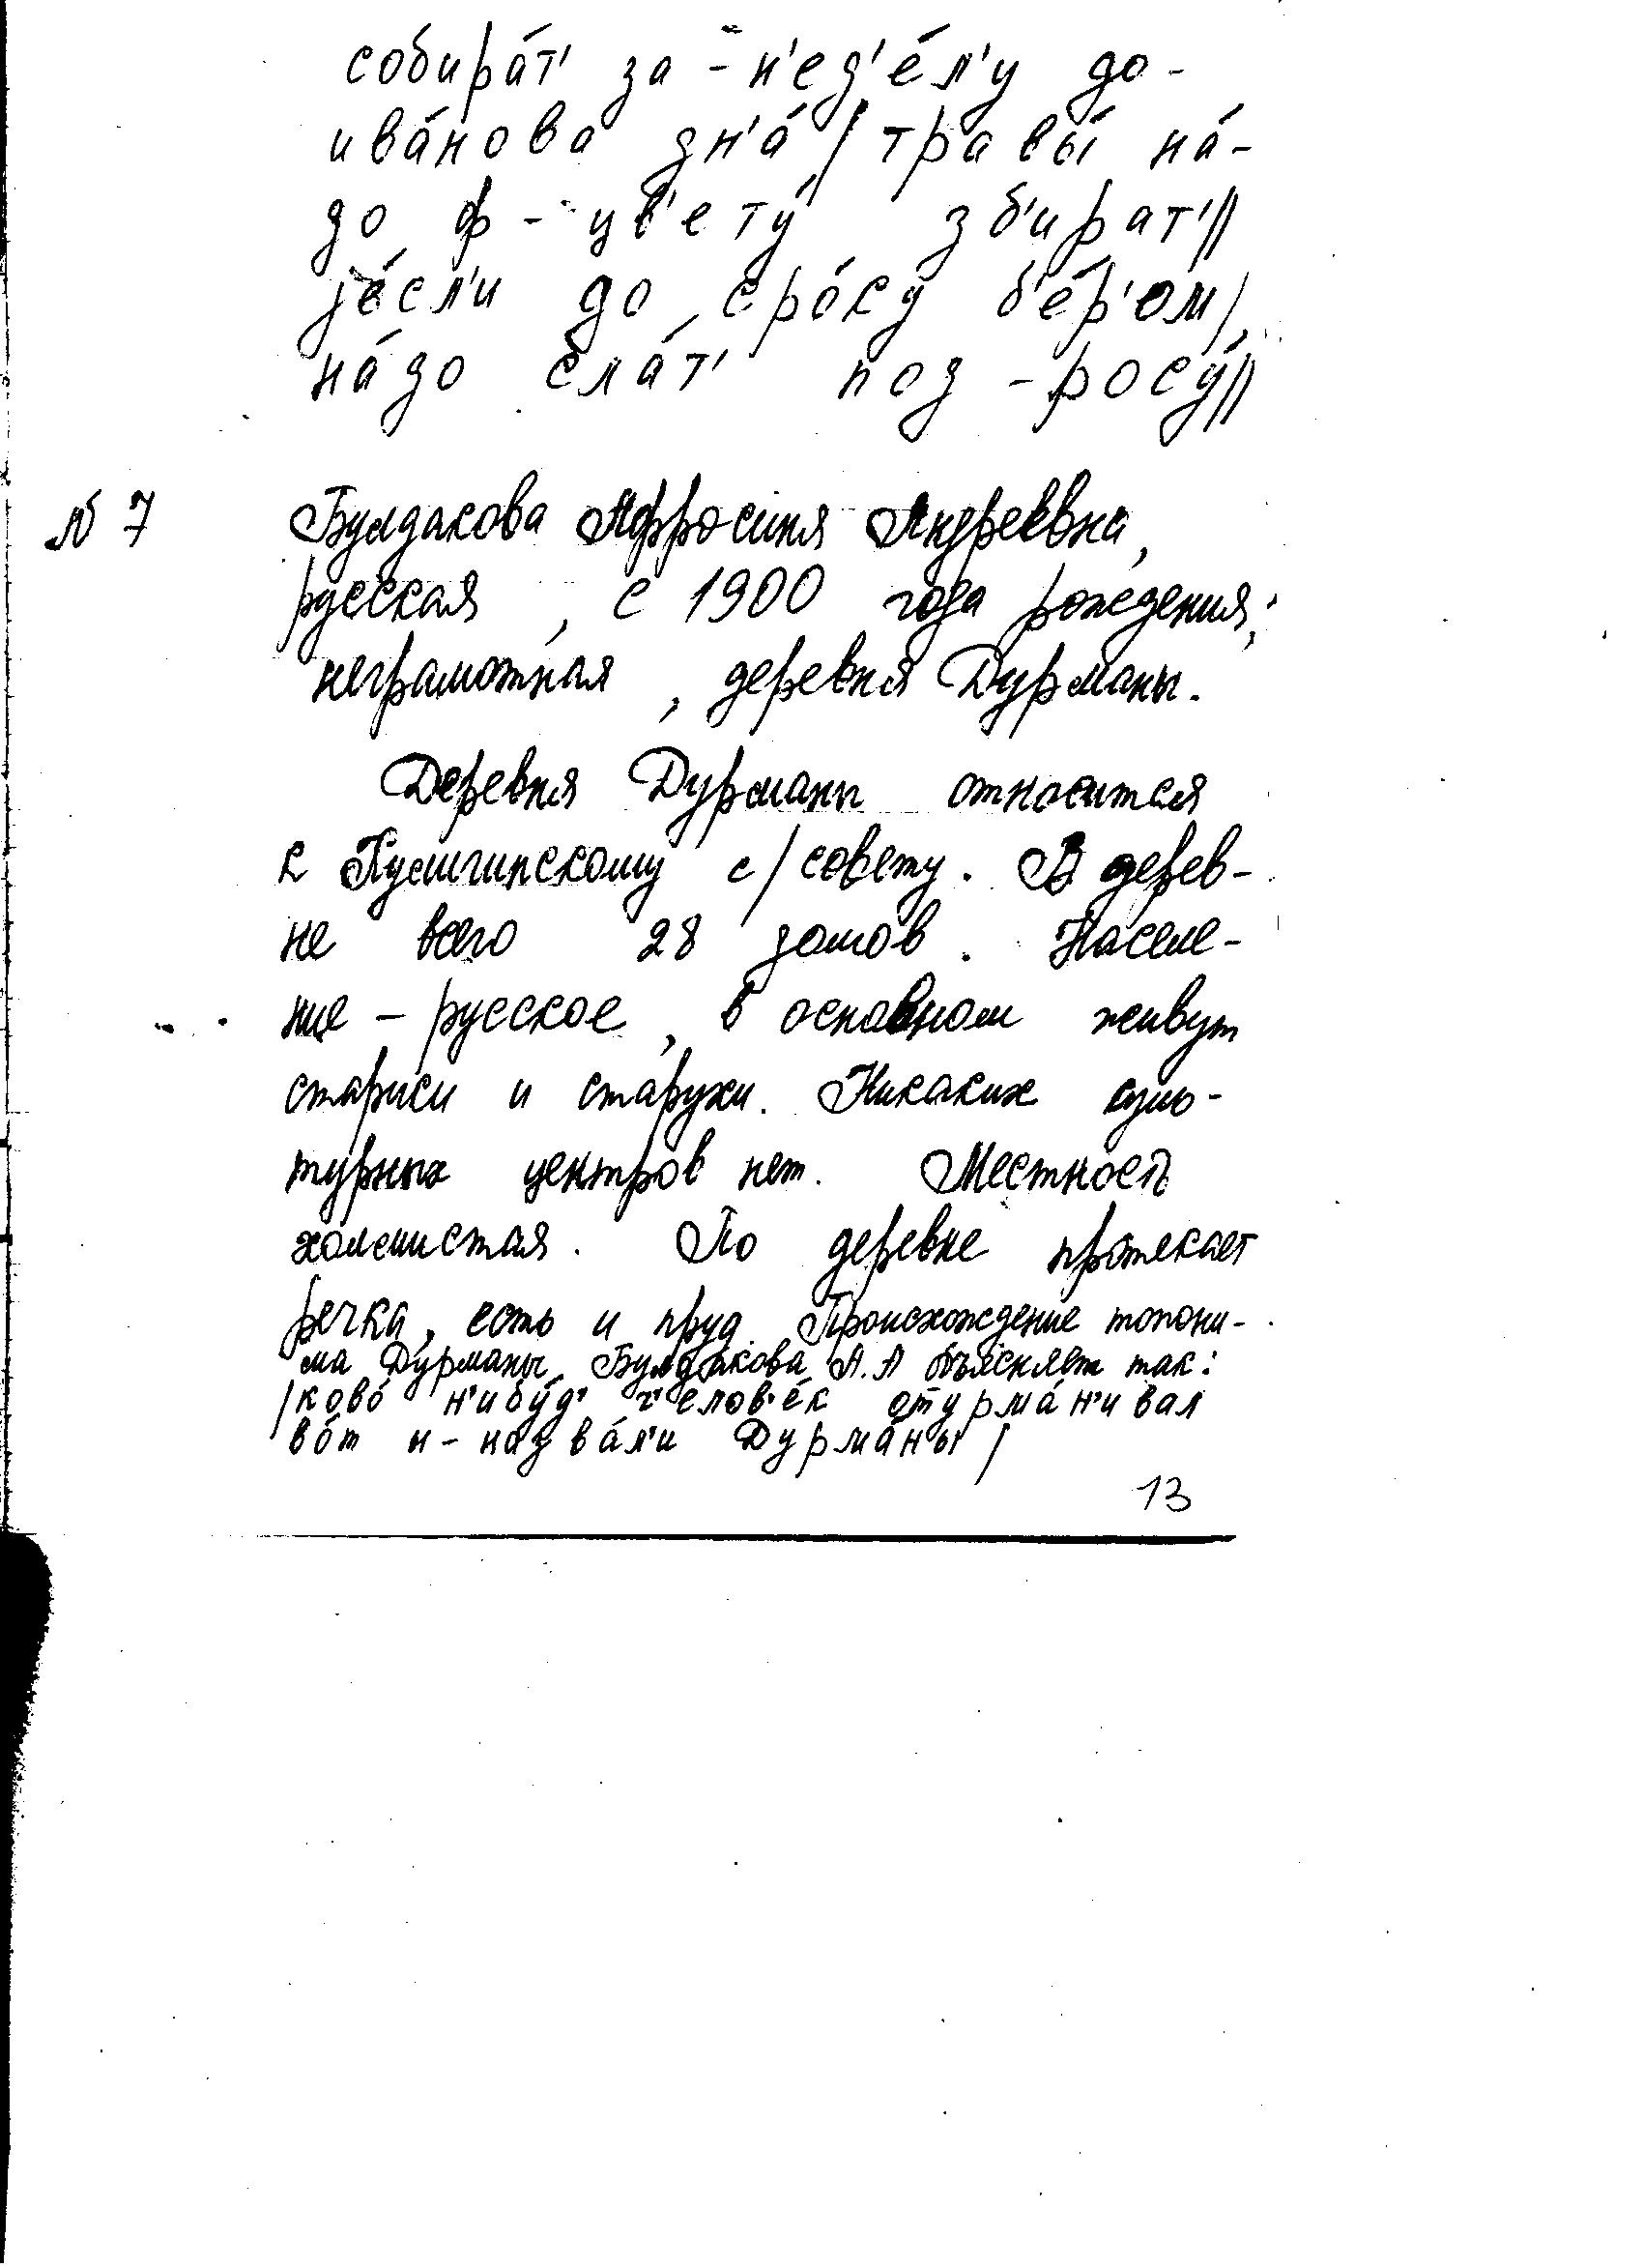 собира́т' за-н'ед'е́л'у до-
ива́нова дн'а́ / травы́ на́-
до ф-цв'ету́ зб'ират' //
jе́сл'и до сро́ку б'е́р'ом /
на́до слат' под-росу́ //
№ 7 Булдакова Афросиня Андреевна,
русская, с 1900 года рождения,
неграмотная, деревня Дурманы.
Деревня Дурманы относится
к с/совету. В дерев-
не всего 28 домов. Населе-
ние - русское, в основном живут
старики и старухи. Никаких куль-
турных центров нет. Местность
холмистая. По деревне протекает
речка, есть и пруд. Происхождение топони-
ма Дурманы Булдакова А.А объясняет так:
/ ково́ н'ибу́д' ч'елов'е́к отурма́н'ивал
во́т и-назва́л'и Дурма́ны /
13